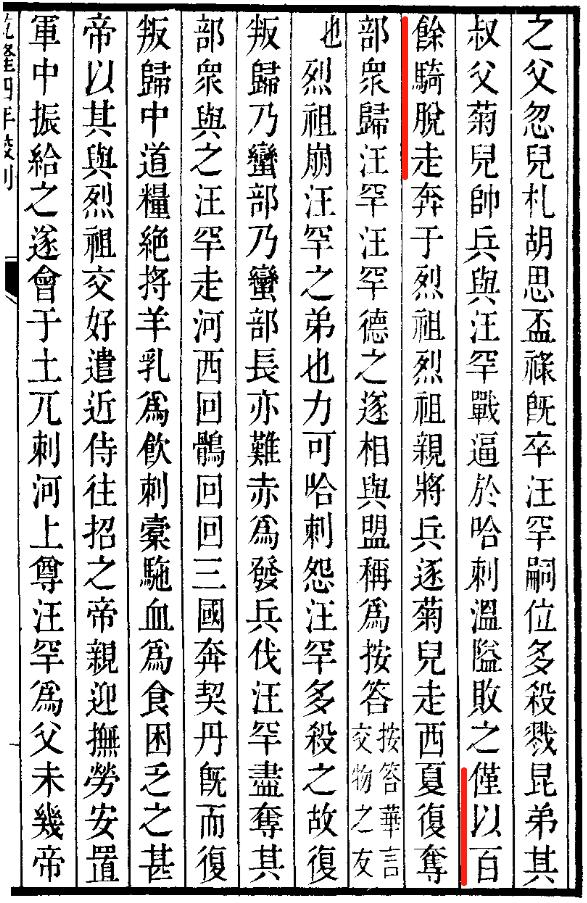 之父忽兒札胡思盃祿旣卒汪罕嗣位多殺戮昆弟其
叔父菊兒帥兵與汪罕戰逼於哈刺溫隘敗之僅以百
餘騎脫走奔于烈祖烈祖親將兵逐菊兒走西夏復奪
部衆歸汪罕汪罕德之遂相與盟稱爲按答按答華言交物之友
也烈祖崩汪罕之弟也力可哈刺怨汪罕多殺之故復
叛歸乃蠻部乃蠻部長亦難赤爲發兵伐汪罕盡奪其
部衆與之汪罕走河西回鶻回回三國奔契丹旣而復
叛歸中道糧絕捋羊乳爲飲刺橐駞血爲食困乏之甚
帝以其與烈祖交好遣近侍往招之帝親迎撫勞安置
軍中振給之遂會于土兀刺河上尊汪罕爲父未幾帝
乾隆四年校刊